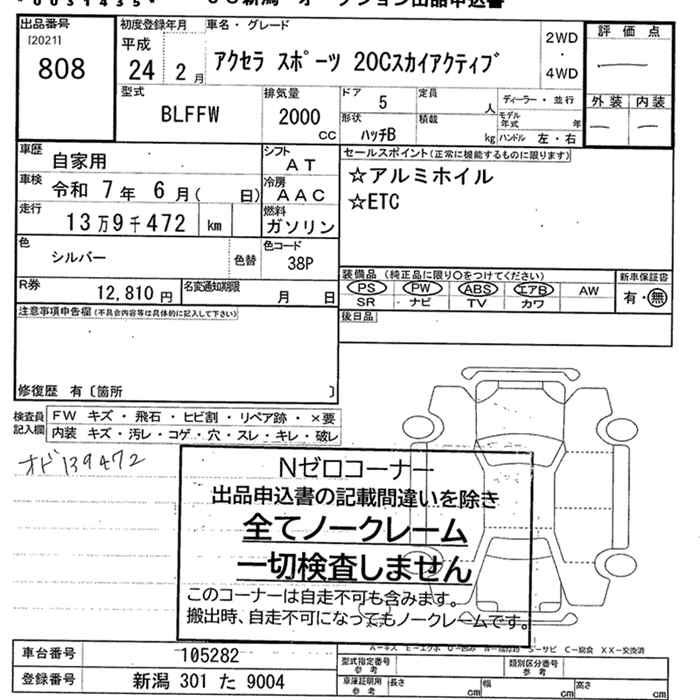 *0031435*
出品番号
[2021]
808
初度登録年月
平成
24 2月
車名・グレード
アクセラ スポーツ 20Cスカイアクティブ
2WD
・
4WD
評価点
外装 内装
型式
BLFFW
排気量
2000
cc
ドア
5
定員
人
形状
ハッチB
積載
kg
ディーラー・並行
モデル年式 年
ハンドル 左・右
車歴
自家用
車検
令和 7年 6月( 日)
走行
13万9千472 km
シフト
AT
冷房
AAC
燃料
ガソリン
色
シルバー
色替
色コード
38P
R券
12,810円
名変通知期限
月 日
セールスポイント(正常に機能するものに限ります)
☆アルミホイル
☆ETC
装備品(純正品に限り○をつけてください)
PS PW ABS エアB AW
SR ナビ TV カワ
新車保証書
有・無
後日品
注意事項申告欄(不具合内容等は具体的に記入して下さい)
修復歴 有〔箇所 〕
検査員記入欄
FW キズ・飛石・ヒビ割・リペア跡・×要
内装 キズ・汚レ・コゲ・穴・スレ・キレ・破レ
オド139472
Nゼロコーナー
出品申込書の記載間違いを除き
全てノークレーム
一切検査しません
このコーナーは自走不可も含みます。
搬出時、自走不可になってもノークレームです。
車台番号
105282
登録番号
新潟 301 た 9004
型式指定番号
参考
類別区分番号
参考
車庫証明用
参考
長さ cm
幅 cm
高さ cm